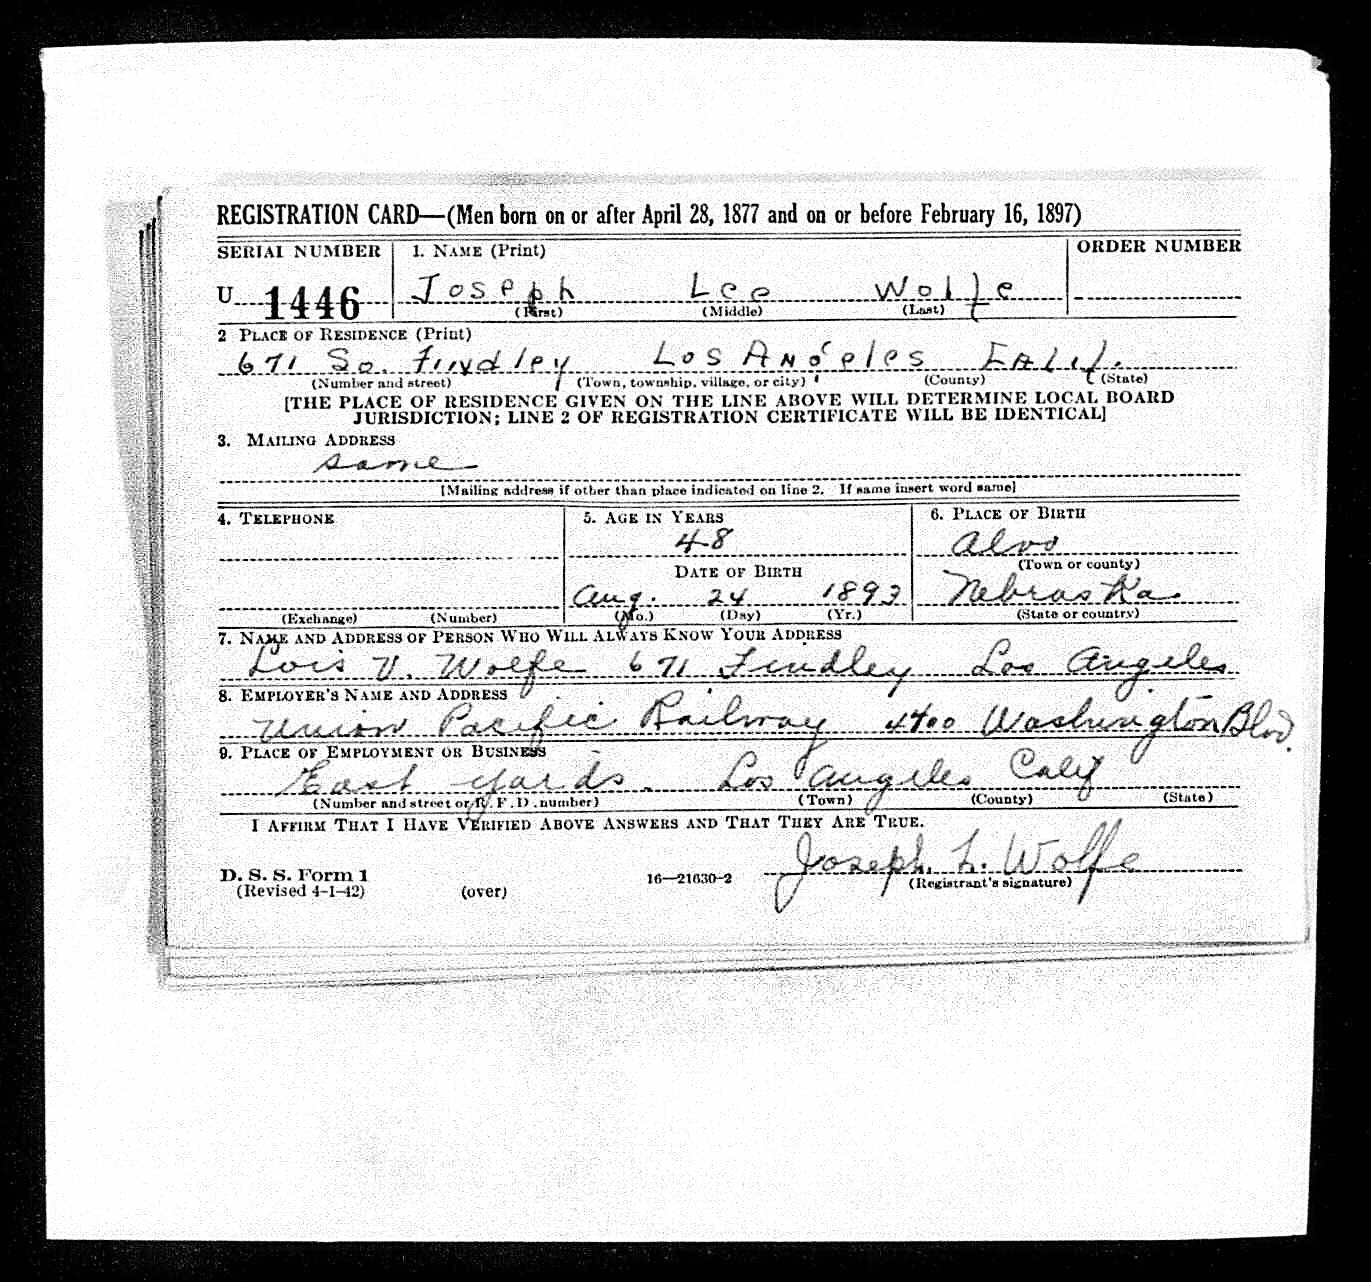 REGISTRATION CARD—(Men born on or after April 28, 1877 and on or before February 16, 1897)
SERIAL NUMBER 1. NAME (Print) ORDER NUMBER
U 1446 Joseph Lee Wolfe
(First) (Middle) (Last)
2 PLACE OF RESIDENCE (Print)
671 So. Findley Los Angeles Calif.
(Number and street) (Town, township, village, or city) (County) (State)
[THE PLACE OF RESIDENCE GIVEN ON THE LINE ABOVE WILL DETERMINE LOCAL BOARD
JURISDICTION; LINE 2 OF REGISTRATION CERTIFICATE WILL BE IDENTICAL]
3. MAILING ADDRESS
same
[Mailing address if other than place indicated on line 2. If same insert word same]
4. TELEPHONE 5. AGE IN YEARS 6. PLACE OF BIRTH
48 Alvo
(Town or county)
DATE OF BIRTH
Aug. 24 1893 Nebraska
(Exchange) (Number) (Mo.) (Day) (Yr.) (State or country)
7. NAME AND ADDRESS OF PERSON WHO WILL ALWAYS KNOW YOUR ADDRESS
Lois V. Wolfe 671 Findley Los Angeles
8. EMPLOYER'S NAME AND ADDRESS
Union Pacific Railway 4700 Washington Blvd.
9. PLACE OF EMPLOYMENT OR BUSINESS
East Yards. Los Angeles Calif
(Number and street or R. F. D. number) (Town) (County) (State)
I AFFIRM THAT I HAVE VERIFIED ABOVE ANSWERS AND THAT THEY ARE TRUE.
Joseph L. Wolfe
D. S. S. Form 1 16—21630-2 (Registrant's signature)
(Revised 4-1-42) (over)